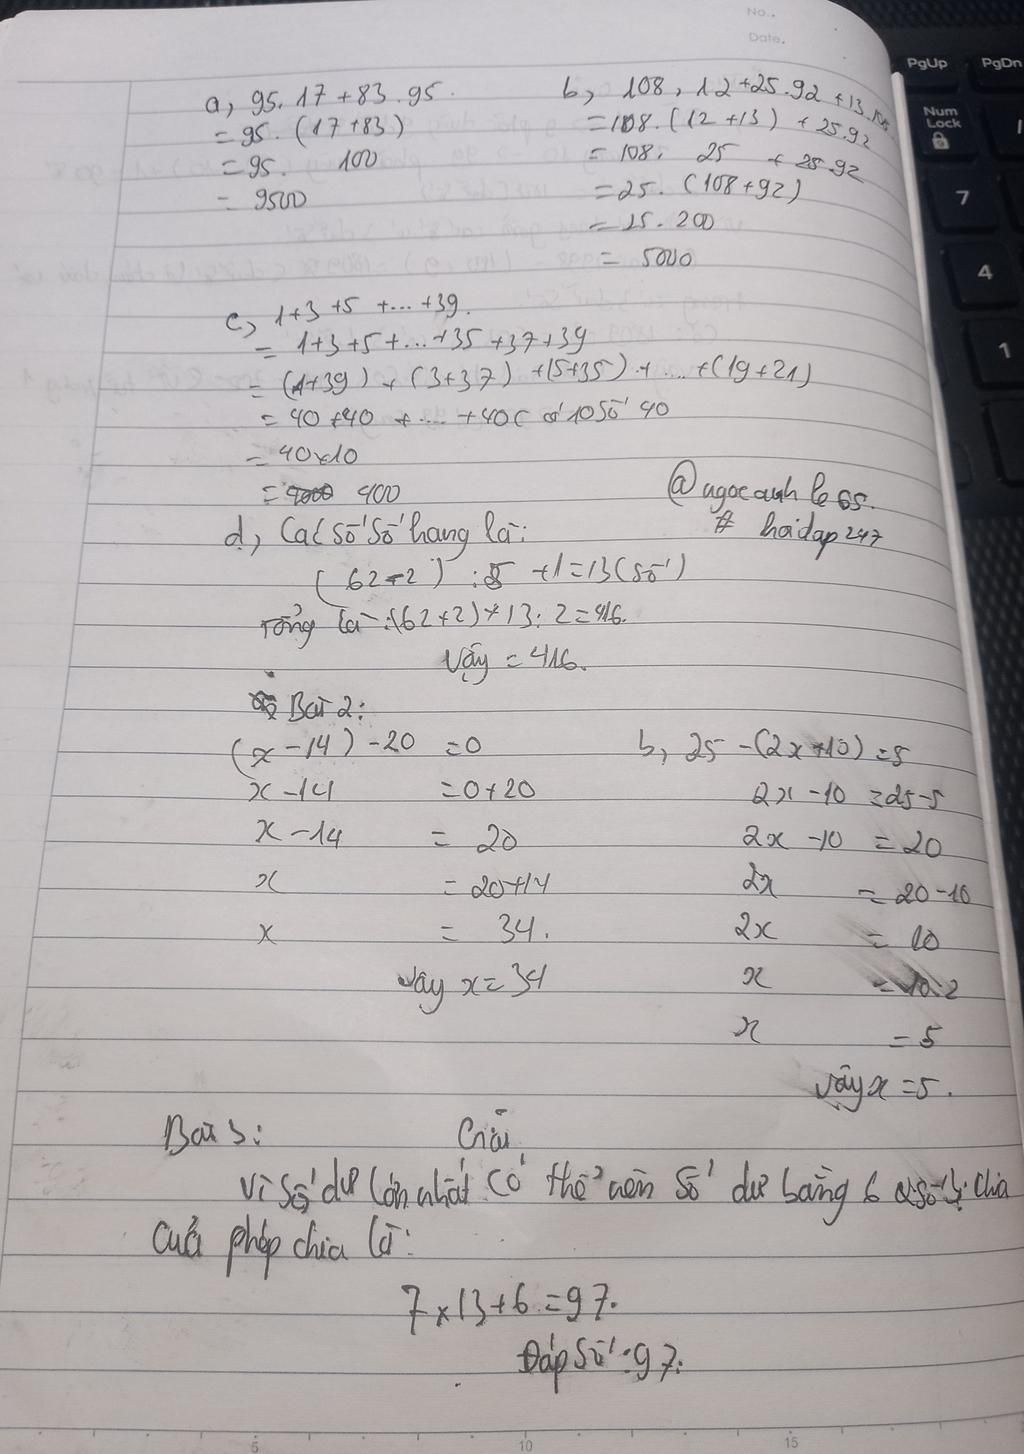 No.
Date.
a, 95. 17 + 83. 95.
= 95. (17+83)
= 95. 100
= 9500
b, 108. 12 + 25. 92 + 13.108
= 108. (12 + 13) + 25.92
= 108. 25 + 25.92
= 25. (108+92)
= 25. 200
= 5000
c, 1+3 +5 +... +39.
= 1+3+5+...+35 +37+39
= (1+39) + (3+37) + (5+35) + ... +(19+21)
= 40 +40 + ... +40 ( có 10 số 40
= 40x10
= 400
@ngocanhle65.
# hoidap247
d, Các số số hang là:
(62-2) : 5 +1=13(số)
Tổng là :(62+2)x13: 2=416.
Vậy = 416.
Bài 2:
(x-14) -20 =0
x-14 =0+20
x-14 = 20
x = 20+14
x = 34.
vậy x = 34
b, 25 -(2x+10)=5
2x -10 =25-5
2x -10 = 20
2x = 20-10
2x = 10
x = 10:2
x = 5
vậy x =5.
Bài 3: Giải
Vì số dư lớn nhất có thể nên số dư bằng 6 chia
của phép chia là:
7x13+6=97.
Đáp số:97.
PgUp
PgDn
Num
Lock
7
4
1
5
10
15